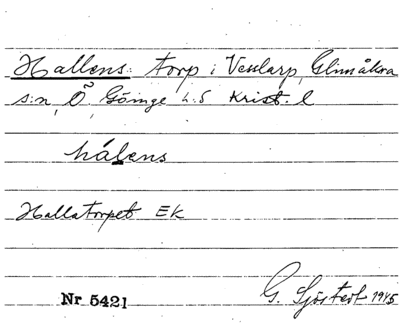 Hallens: torp i Vesslarp, Glimåkra
s:n, Ö. Göinge h.s Krist. l
hálens
Hallatorpet EK
G. Sjöstedt 1945
Nr 5421